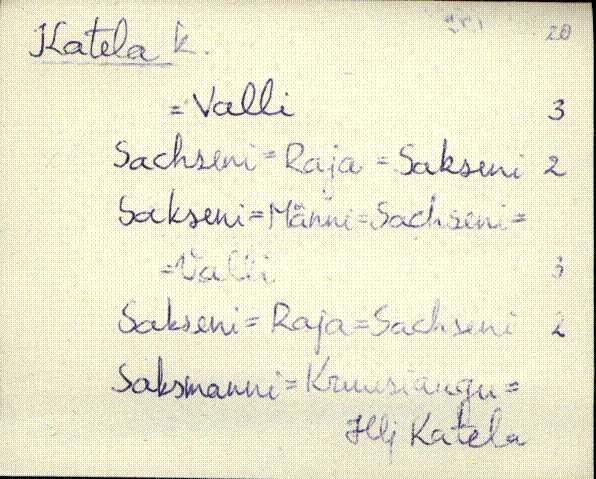 Katela k. 20
= Valli 3
Sachseni = Raja = Sakseni 2
Sakseni = Männi = Sachseni =
= Valli 3
Sakseni = Raja = Sachseni 2
Saksmanni = Kruusiaugu =
Katela